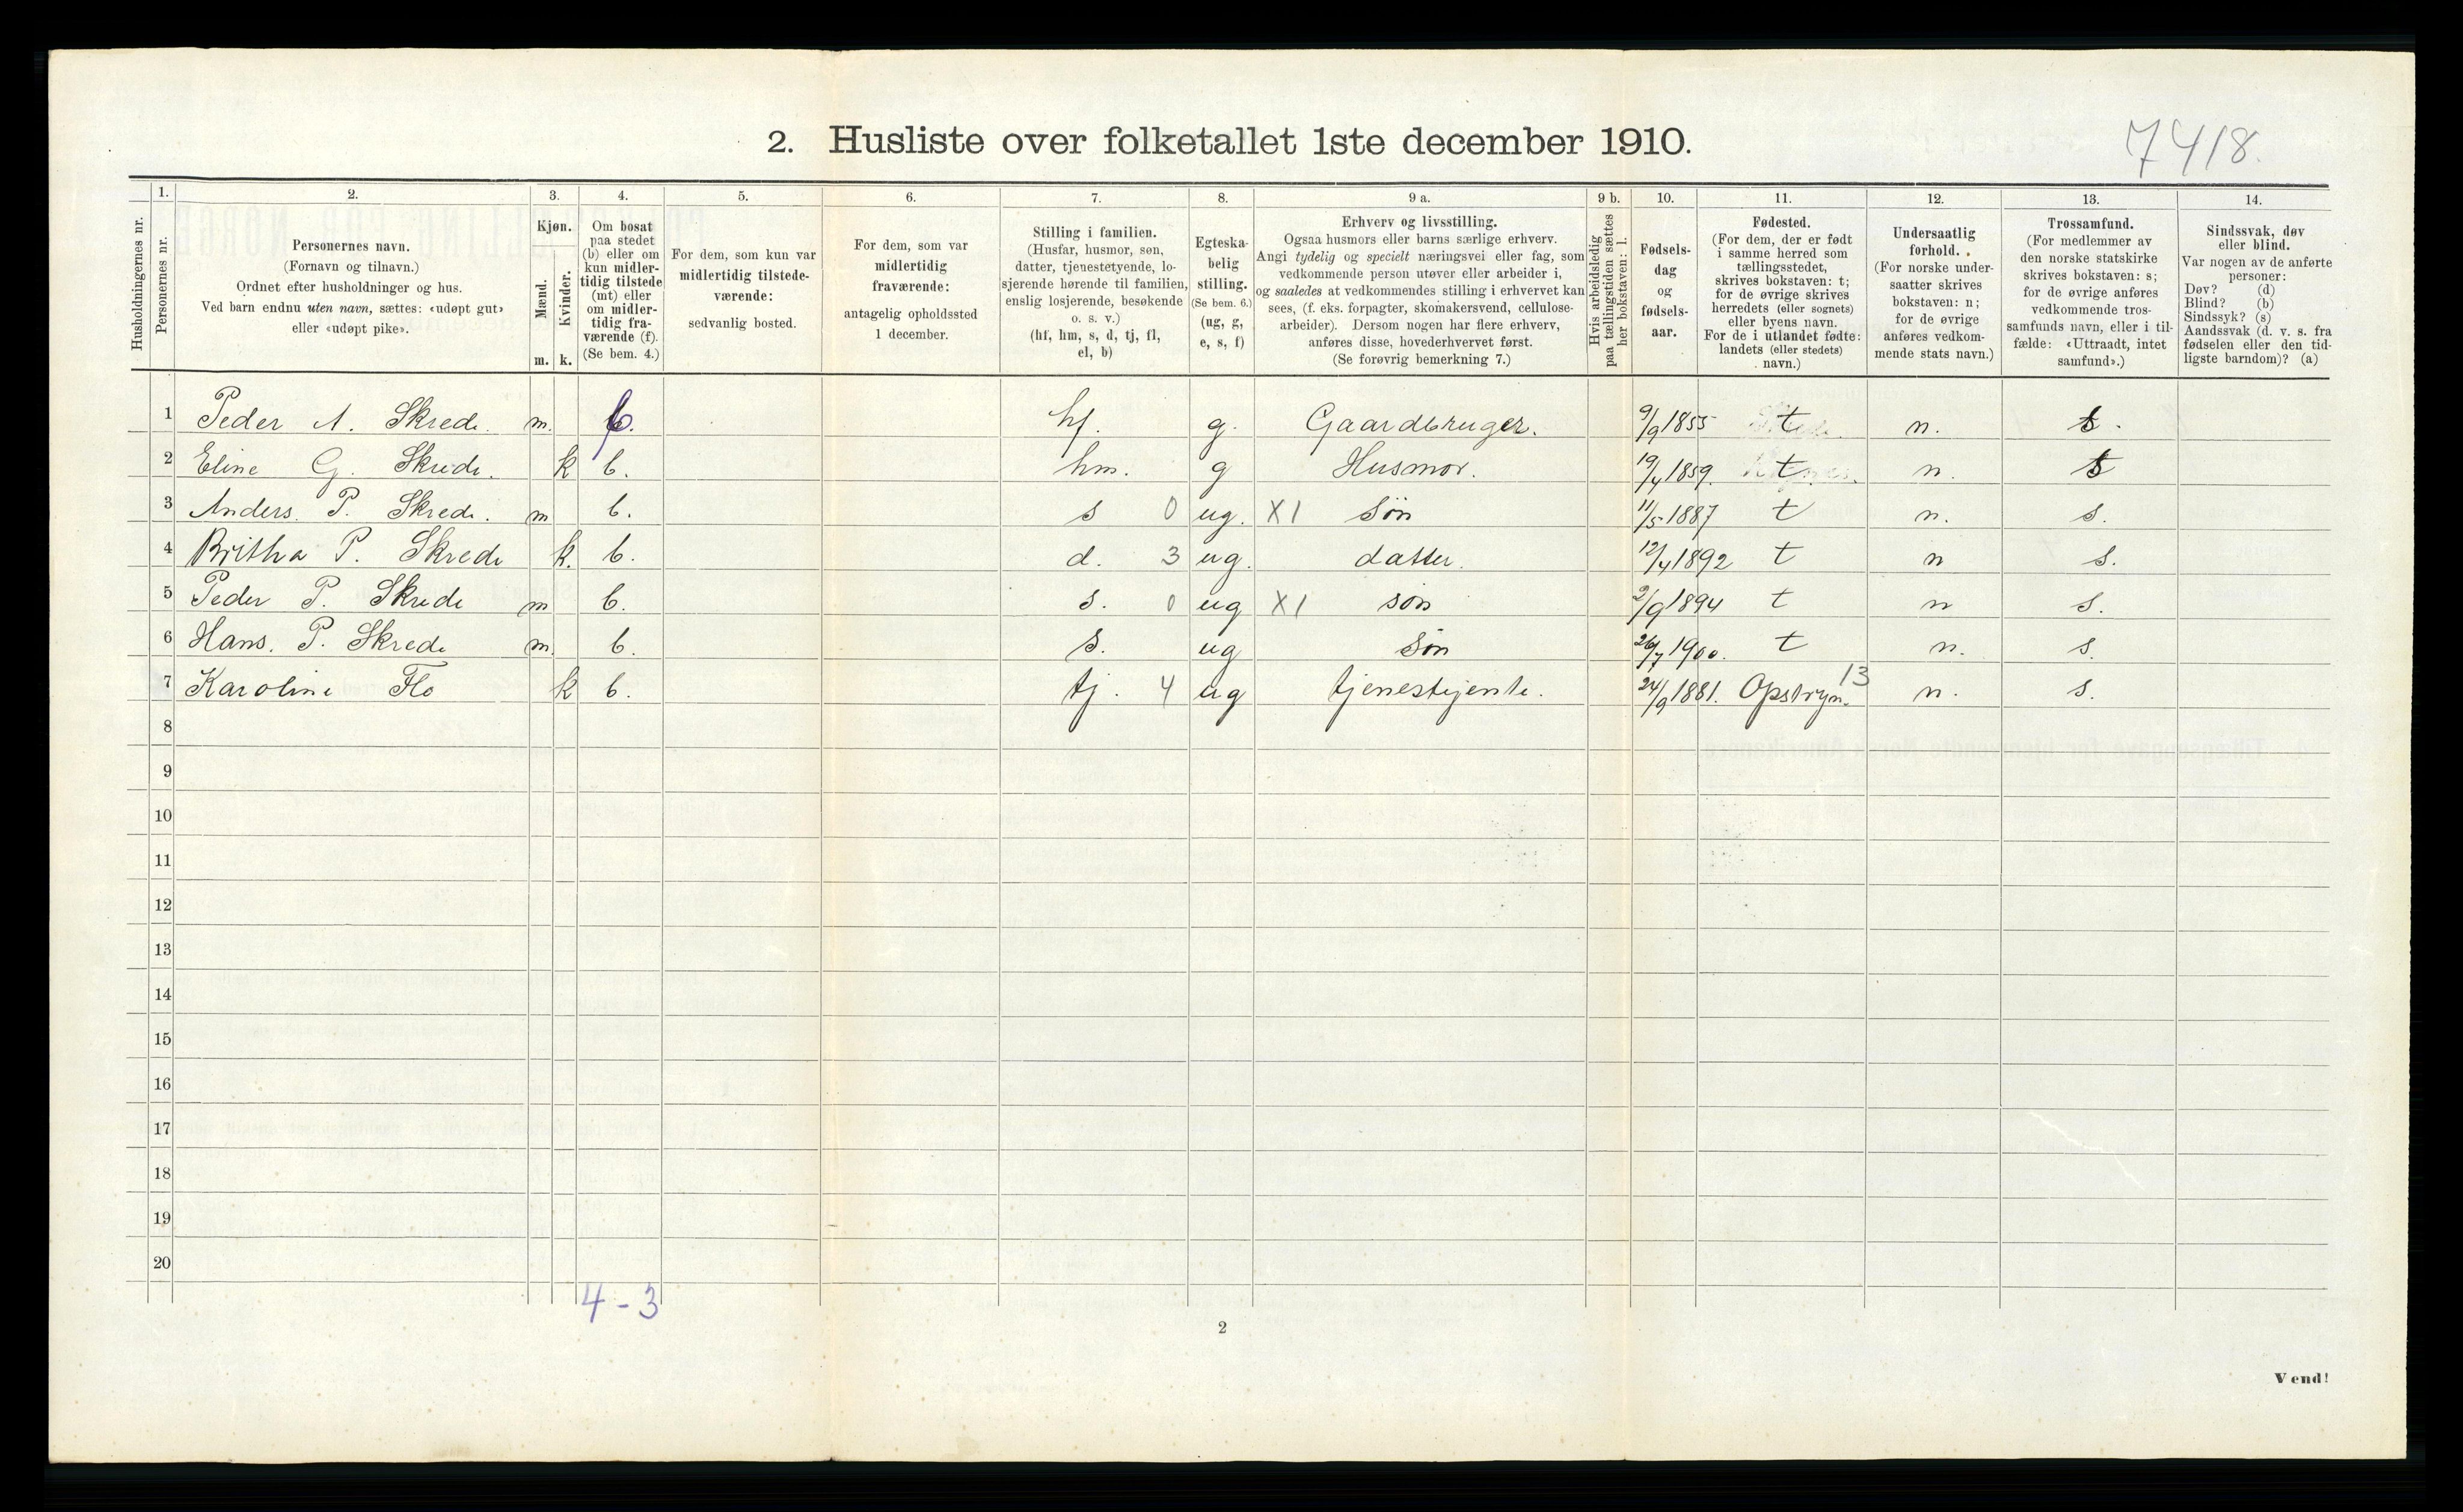 2. Husliste over folketallet 1ste december 1910.
7418.
Husholdningernes nr.
1.
Personernes nr.
2.
Personernes navn.
(Fornavn og tilnavn.)
Ordnet efter husholdninger og hus.
Ved barn endnu uten navn, sættes: «udøpt gut»
eller «udøpt pike».
3.
Kjøn.
Mænd.
Kvinder.
m. k.
4.
Om bosat
paa stedet
(b) eller om
kun midler-
tidig tilstede
(mt) eller
om midler-
tidig fra-
værende (f).
(Se bem. 4.)
5.
For dem, som kun var
midlertidig tilstede-
værende:
sedvanlig bosted.
6.
For dem, som var
midlertidig
fraværende:
antagelig opholdssted
1 december.
7.
Stilling i familien.
(Husfar, husmor, søn,
datter, tjenestetyende, lo-
sjerende hørende til familien,
enslig losjerende, besøkende
o. s. v.)
(hf, hm, s, d, tj, fl,
el, b)
8.
Egteska-
belig
stilling.
(Se bem. 6.)
(ug, g,
e, s, f)
9 a.
Erhverv og livsstilling.
Ogsaa husmors eller barns særlige erhverv.
Angi tydelig og specielt næringsvei eller fag, som
vedkommende person utøver eller arbeider i,
og saaledes at vedkommendes stilling i erhvervet kan
sees, (f. eks. forpagter, skomakersvend, cellulose-
arbeider). Dersom nogen har flere erhverv,
anføres disse, hovederhvervet først.
(Se forøvrig bemerkning 7.)
9 b.
Hvis arbeidsledig
paa tællingstiden sættes
her bokstaven: l.
10.
Fødsels-
dag
og
fødsels-
aar.
11.
Fødested.
(For dem, der er født
i samme herred som
tællingsstedet,
skrives bokstaven: t;
for de øvrige skrives
herredets (eller sognets)
eller byens navn.
For de i utlandet fødte:
landets (eller stedets)
navn.)
12.
Undersaatlig
forhold.
(For norske under-
saatter skrives
bokstaven: n;
for de øvrige
anføres vedkom-
mende stats navn.)
13.
Trossamfund.
(For medlemmer av
den norske statskirke
skrives bokstaven: s;
for de øvrige anføres
vedkommende tros-
samfunds navn, eller i til-
fælde: «Uttraadt, intet
samfund».)
14.
Sindssvak, døv
eller blind.
Var nogen av de anførte
personer:
Døv? (d)
Blind? (b)
Sindssyk? (s)
Aandssvak (d. v. s. fra
fødselen eller den tid-
ligste barndom)? (a)
1 Peder A. Skrede. m. b. hf. g. Gaardbruger. 9/9 1855 t n. s.
2 Eline G. Skrede. k b. hm. g Husmor. 19/4 1859. t n. s
3 Anders. P. Skrede. m b. s 0 ug. X1 Søn 11/5 1887 t n. s.
4 Britha P. Skrede k. b. d. 3 ug. datter. 12/4 1892 t n s.
5 Peder P. Skrede m b. s. 0 ug X1 søn 2/9 1894 t n s.
6 Hans. P. Skrede m. b. s. ug Søn 26/7 1900. t n. s.
7 Karoline Flo k b. tj. 4 ug tjenestejente. 24/9 1881. Opstryn. 13 n. s.
8
9
10
11
12
13
14
15
16
17
18
19
20
4-3
2
Vend!